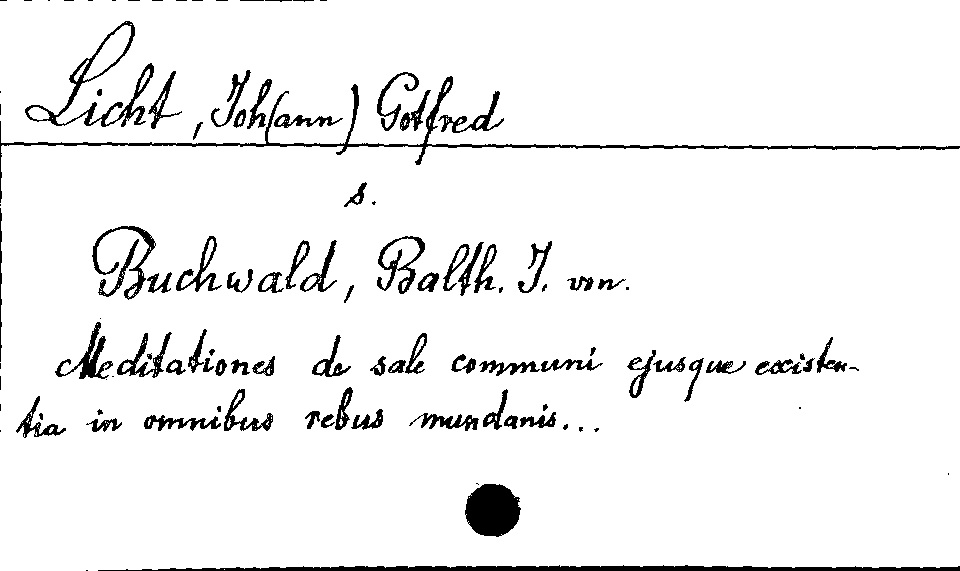 Licht, Joh(ann) Gotfred
s.
Buchwald, Balth. J. von.
Meditationes de sale communi ejusque existen-
tia in omnibus rebus mundanis...